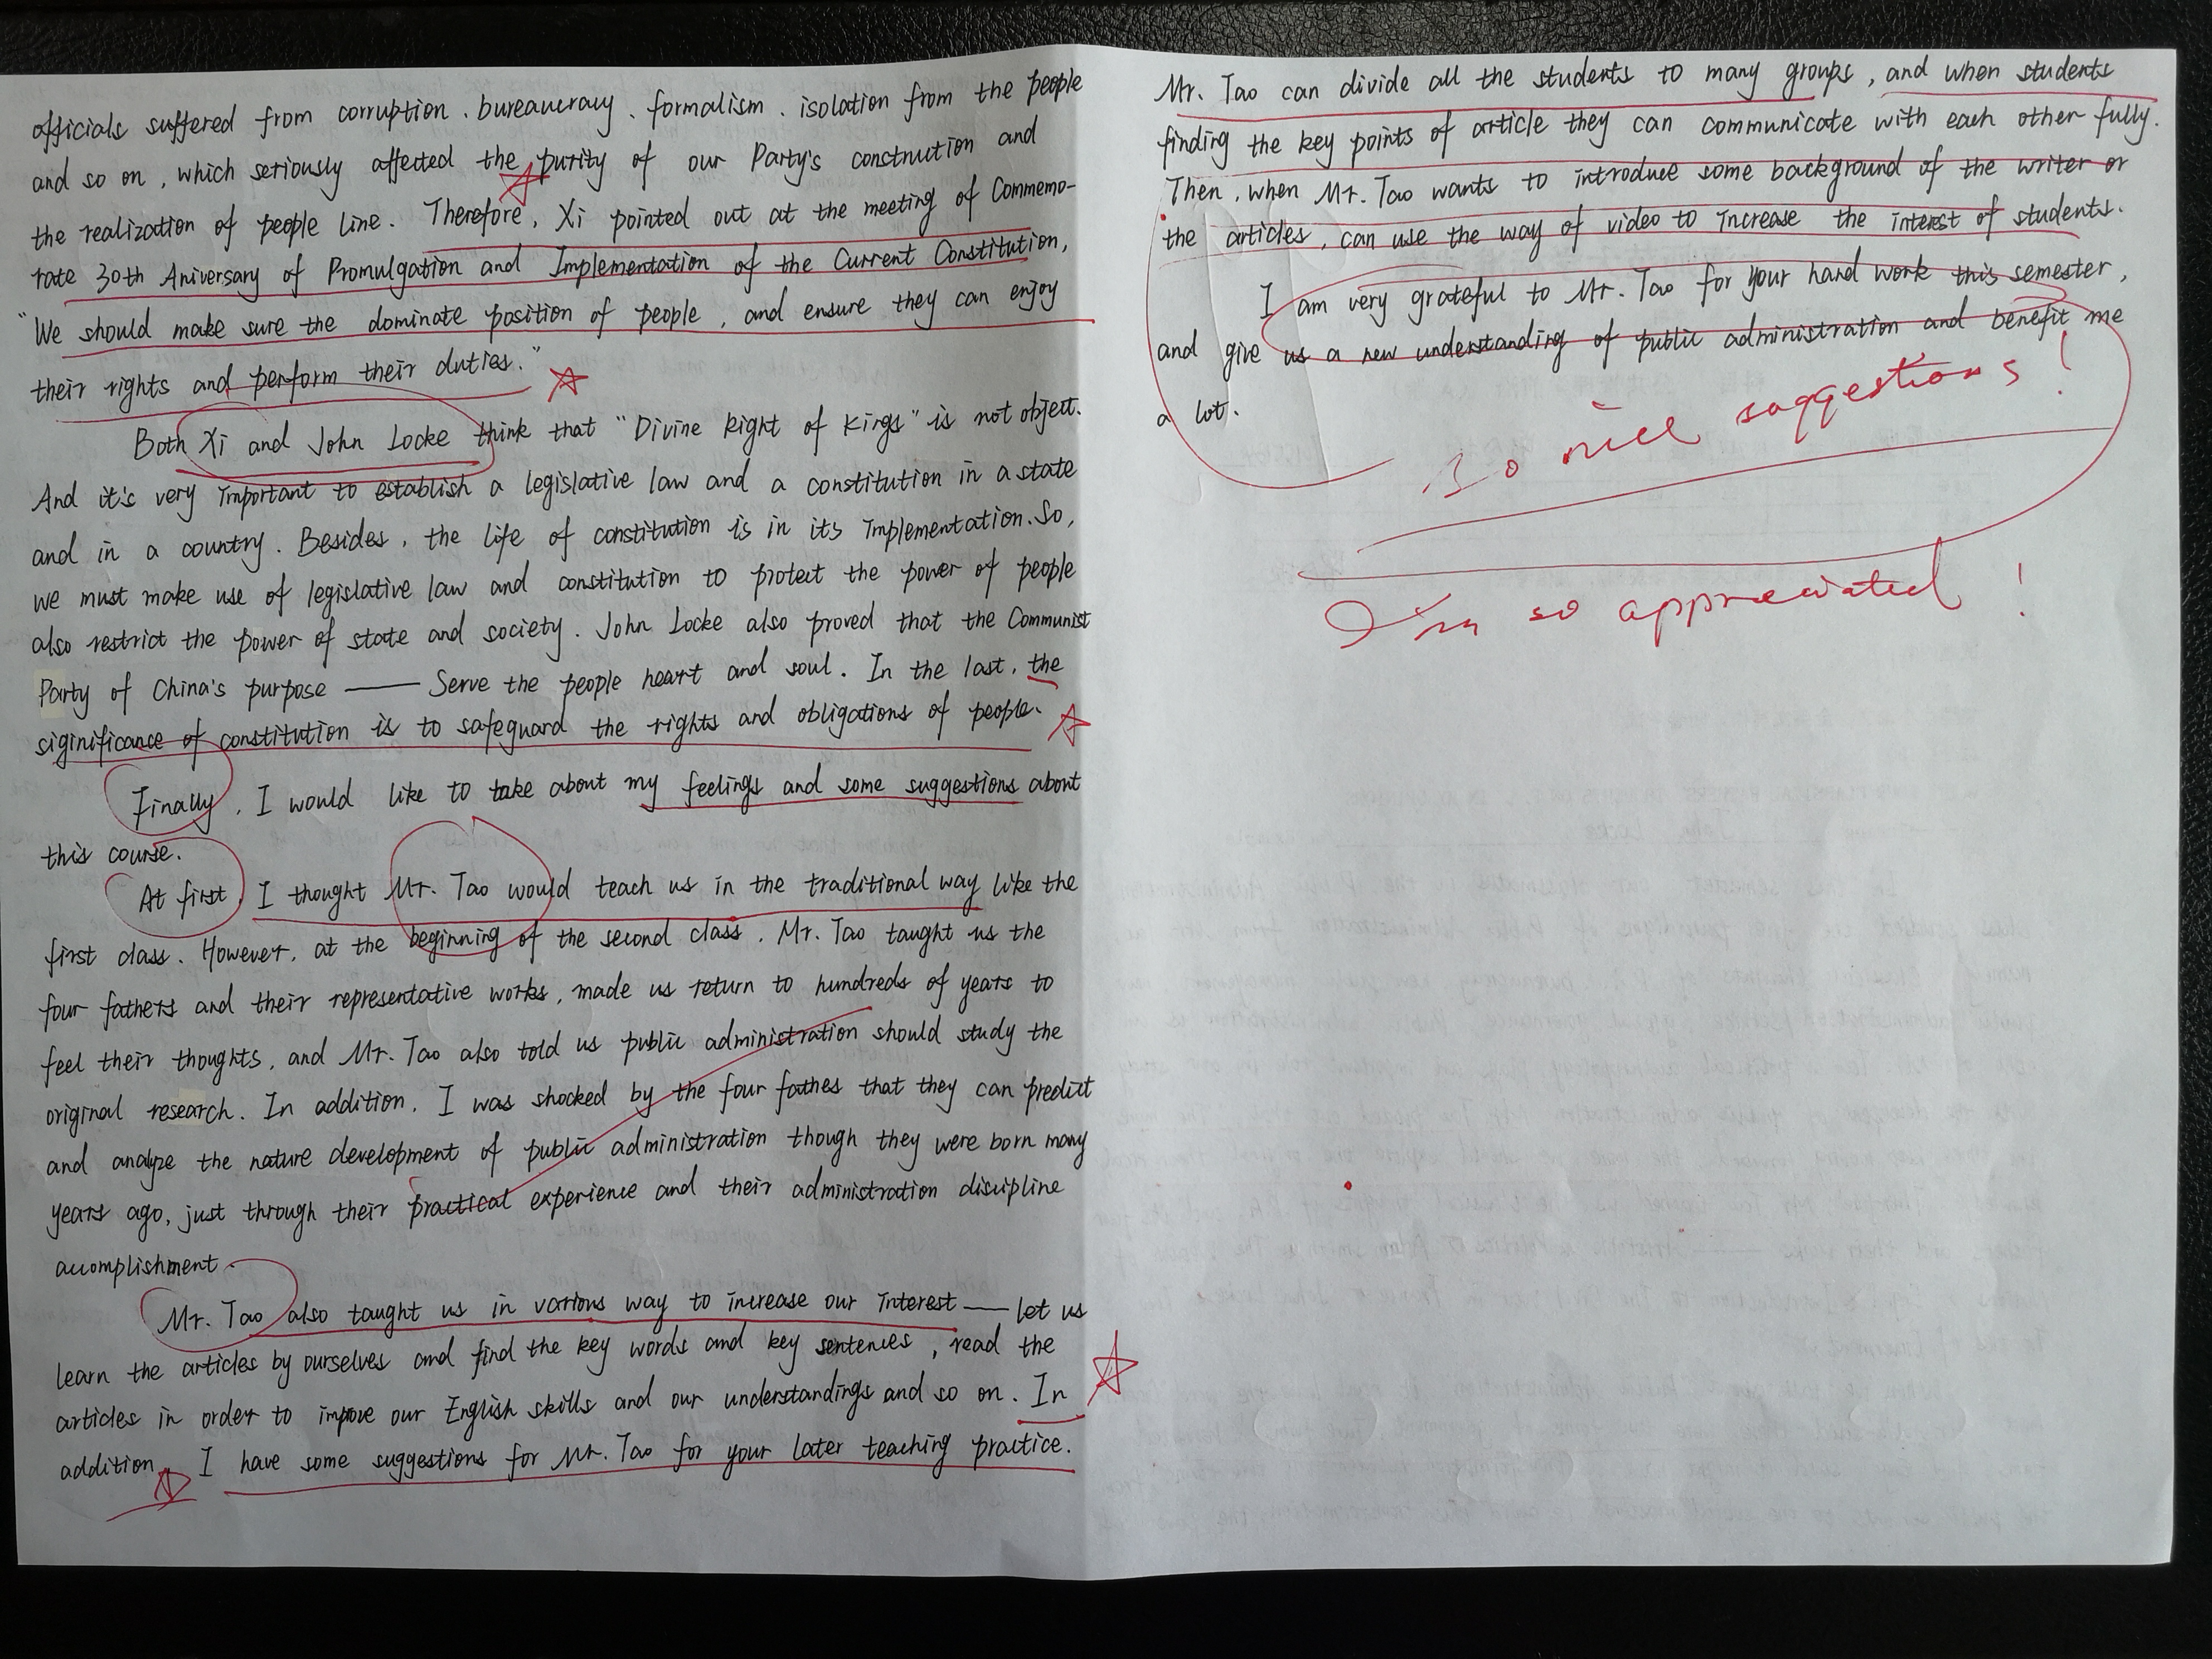 officials suffered from corruption、bureaucracy、formalism、isolation from the people
and so on, which seriously affected the purity of our Party's construction and
the realization of people line. Therefore, Xi pointed out at the meeting of Commemo-
rate 30th Aniversary of Promulgation and Implementation of the Current Constitution,
"We should make sure the dominate position of people, and ensure they can enjoy
their rights and perform their duties."
Both Xi and John Locke think that "Divine Right of Kings" is not object.
And it's very important to establish a legislative law and a constitution in a state
and in a country. Besides, the life of constitution is in its Implementation. So,
we must make use of legislative law and constitution to protect the power of people
also restrict the power of state and society. John Locke also proved that the Communist
Party of China's purpose —— Serve the people heart and soul. In the last, the
siginificance of constitution is to safeguard the rights and obligations of people.
Finally, I would like to take about my feelings and some suggestions about
this course.
At first, I thought Mr. Tao would teach us in the traditional way like the
first class. However, at the beginning of the second class, Mr. Tao taught us the
four fathers and their representative works, made us return to hundreds of years to
feel their thoughts, and Mr. Tao also told us public administration should study the
original research. In addition, I was shocked by the four fathes that they can predict
and analyze the nature development of public administration though they were born many
years ago, just through their practical experience and their administration discipline
accomplishment.
Mr. Tao also taught us in various way to increase our interest —— let us
learn the articles by ourselves and find the key words and key sentences, read the
articles in order to improve our English skills and our understandings and so on. In
addition, I have some suggestions for Mr. Tao for your later teaching practice.
Mr. Tao can divide all the students to many groups, and when students
finding the key points of article they can communicate with each other fully.
Then, when Mr. Tao wants to introduce some background of the writer or
the articles, can use the way of video to increase the interest of students.
I am very grateful to Mr. Tao for your hard work this semester,
and give us a new understanding of public administration and benefit me
a lot.
So nice suggestions!
I'm so appreciated!